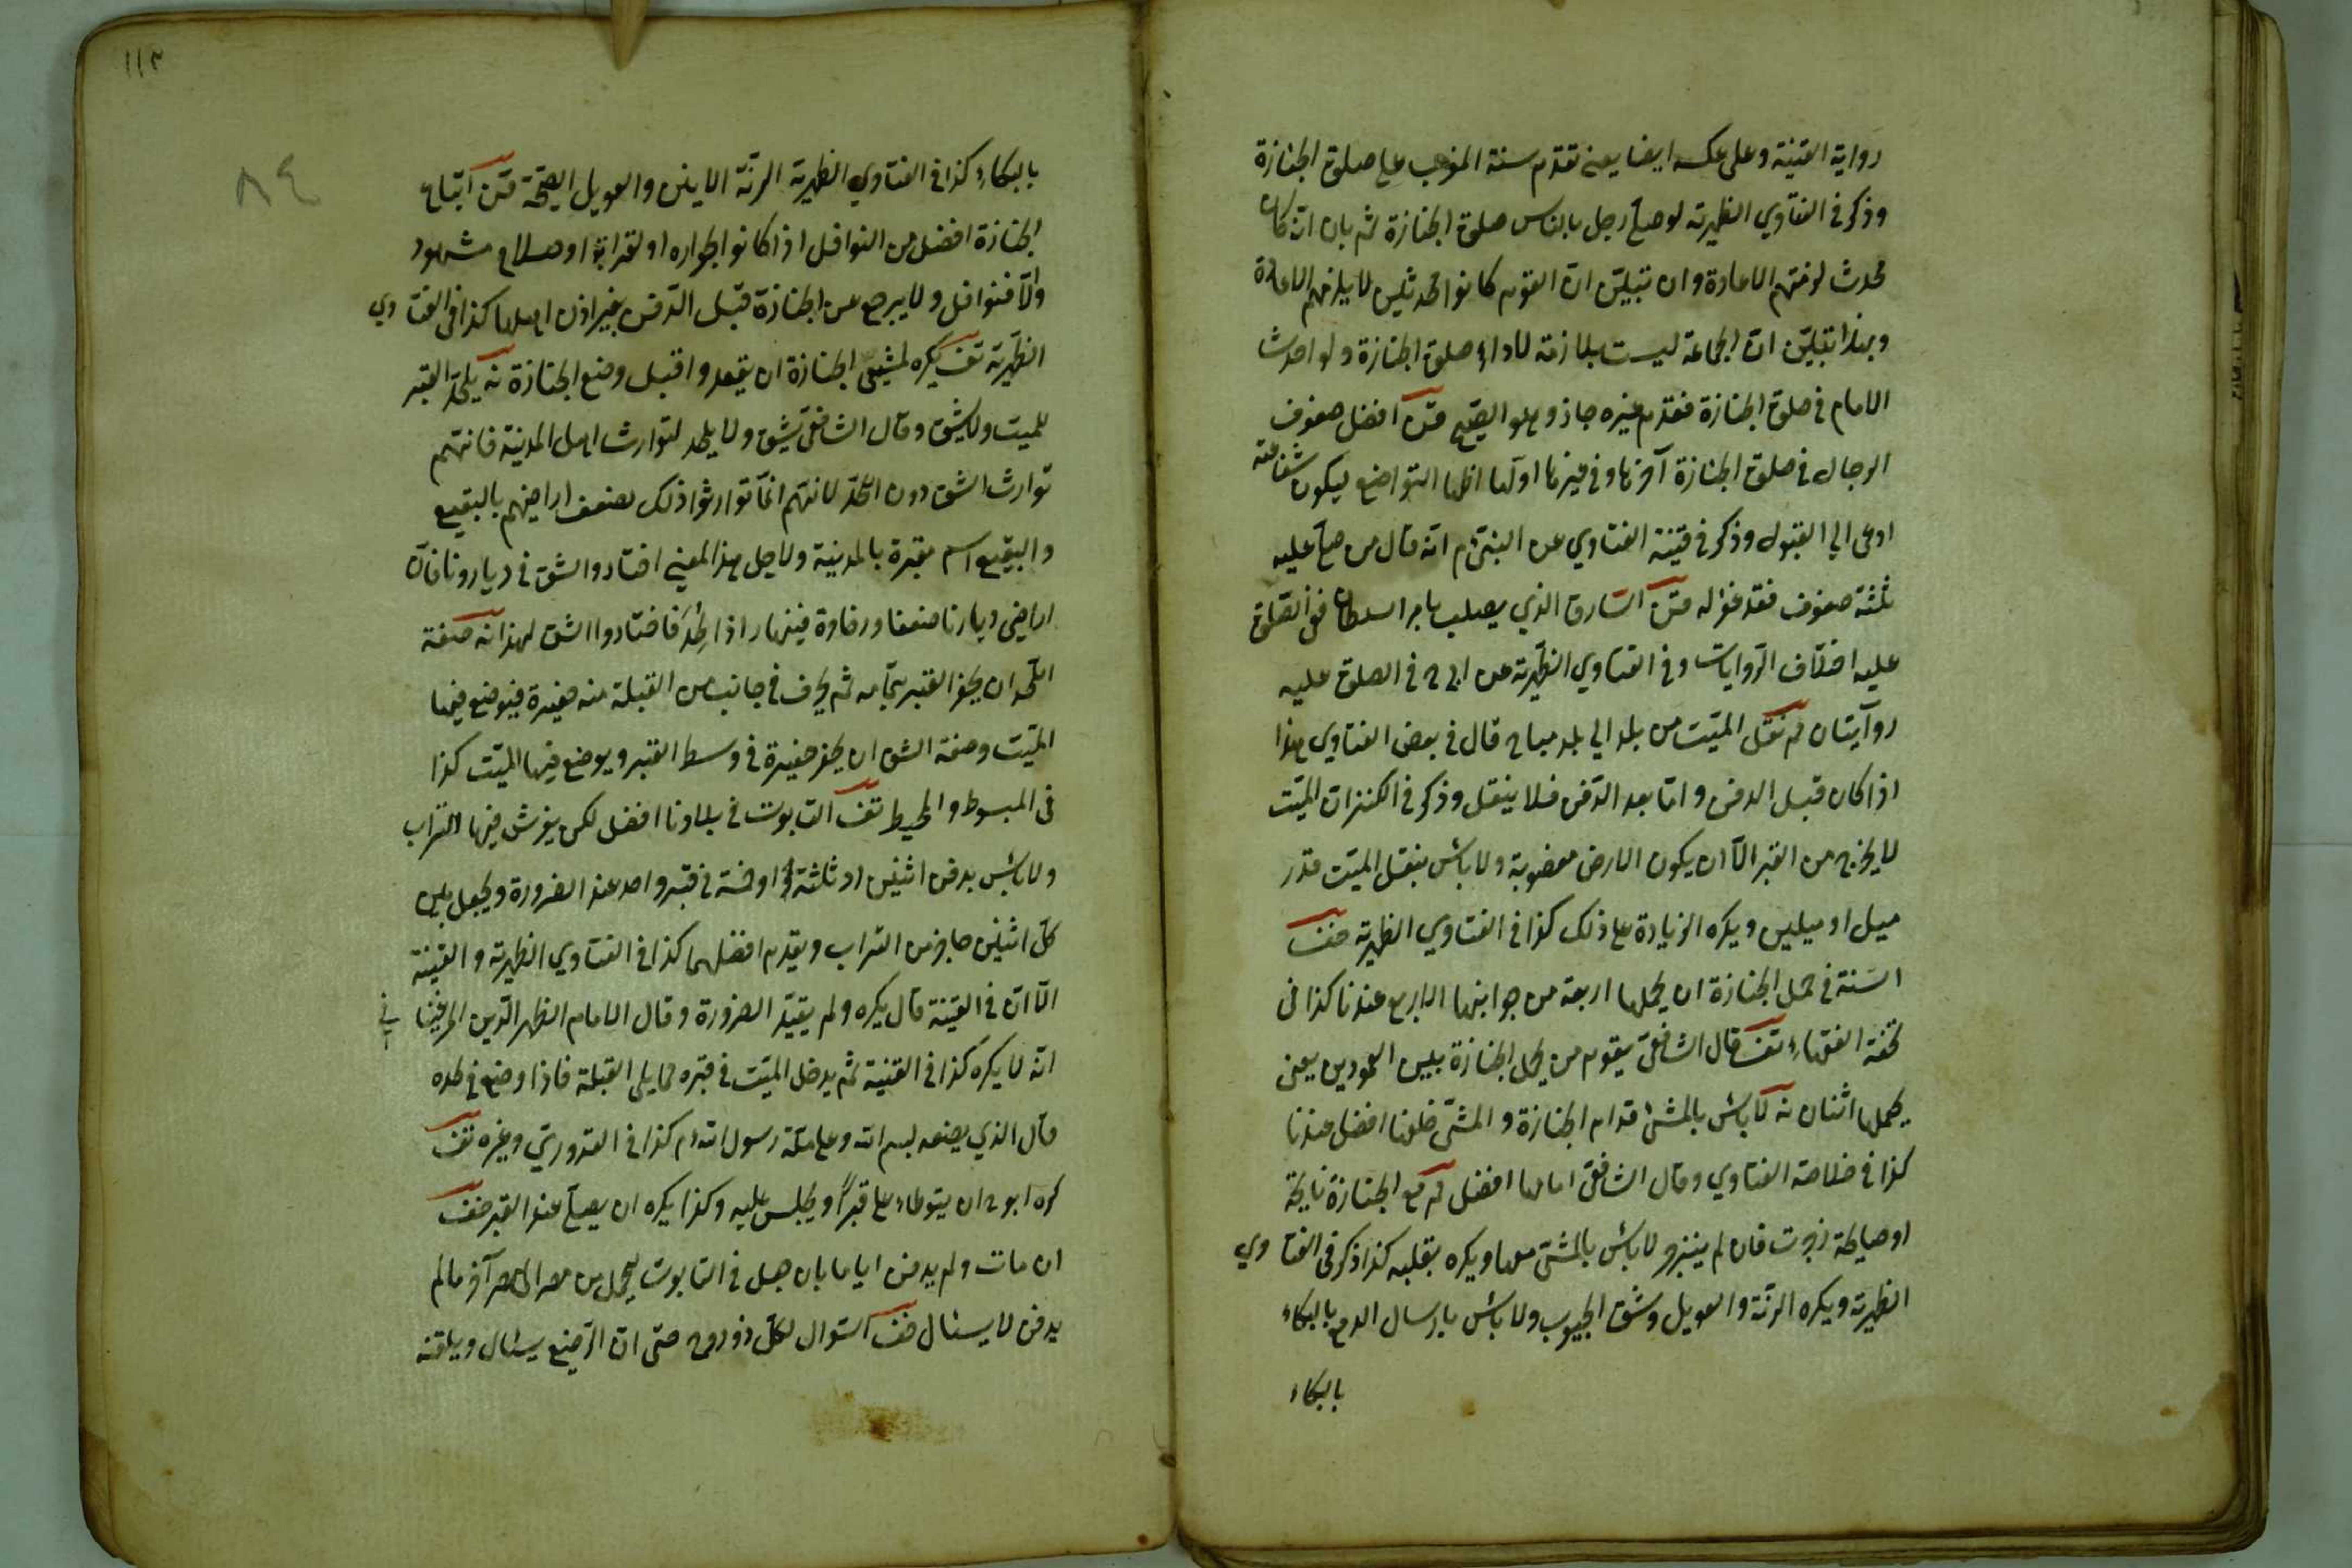 رواية القنية وعلى عكسه ايضا يعنى تقدم سنة المغرب على صلوة الجنازة
وذكر في الفتاوي الظهيرية لو صلى رجل بالناس صلوة الجنازة ثم بان انه كان
محدث لزمتهم الاعادة وان تبيّن انّ القوم كانوا محدثين لا يلزمهم الاعادة
وبهذا تبيّن انّ الجماعة ليست بلازمة لاداء صلوة الجنازة ولو احدث
الامام في صلوة الجنازة فقدم غيره جاز وهو الصحيح افضل صفوف
الرجال في صلوة الجنازة آخرها وفي غيرها اولها اظهارا للتواضع ليكون شفاعته
ادعى الي القبول وذكر في قنية الفتاوي عن النبي م انه قال من صلّى عليه
ثلثة صفوف فقد غفر له السارق الذي يصلب بامر السلطان ففي الصلوة
عليه اختلاف الروايات وفي الفتاوي الظهيرية عن ابي ح في الصلوة عليه
روايتان نقل الميّت من بلد الي بلد مباح قال في بعض الفتاوي هذا
اذا كان قبل الدفن وامّا بعد الدّفن فلا ينقل وذكر في الكنز ان الميّت
لا يخرج من القبر الّا ان يكون الارض مغصوبة ولا بأس بنقل الميّت قدر
ميل او ميلين ويكره الزيادة على ذلك كذا في الفتاوي الظهيرية
السّنة في حمل الجنازة ان يحملها اربعة من جوانبها الاربع عندنا كذا في
تحفة الفقهاء قال الشافعيّ يقوم من يحمل الجنازة بين العمودين يعني
يحملها اثنان لا بأس بالمشي قدام الجنازة والمشي خلفها افضل عندنا
كذا في خلاصة الفتاوي وقال الشافعيّ امامها افضل مع الجنازة نايحة
او صايحة زجرت فان لم ينزجر لا بأس بالمشي معها ويكره بقلبه كذا ذكر في الفتاوي
الظهيرية ويكره الرنّة والعويل وشق الجيوب ولا بأس بارسال الدمع بالبكاء
بالبكاء
١١٣
٨٤
بالبكاء كذا في الفتاوي الظهيرية الرنّة الانين والعويل الصيحة اتباع
الجنازة افضل من النوافل اذا كانوا لجواره او لقرابة او صلاح مشهود
والّا فنوافل ولا يرجع عن الجنازة قبل الدّفن بغير اذن اهلها كذا في الفتاوي
الظهيرية يكره لمشيّعى الجنازة ان يقعدوا قبل وضع الجنازة يلحد القبر
للميت ولا يشق وقال الشافعيّ يشق ولا يلحد لتوارث اهل المدينة فانّهم
توارثوا الشق دون اللّحد لانهم انّما توارثوا ذلك لضعف اراضيهم بالبقيع
والبقيع اسم مقبرة بالمدينة ولاجل هذا المعنى اختاروا الشق في ديارونا فانّ
اراضي ديارنا ضعفا ورخاوة فينهار اذا لحد فاختاروا الشق لهذا صفة
اللّحد ان يحفر القبر بتمامه ثم يحرف في جانب من القبلة منه حفيرة فيوضع فيها
الميّت وصفة الشق ان يحفر حفيرة في وسط القبر ويوضع فيها الميّت كذا
في المبسوط والمحيط التابوت في بلادنا افضل لكن يفرش فيها التراب
ولا بأس بدفن اثنين او ثلثة او خمسة في قبر واحد عند الضرورة ويجعل بين
كلّ اثنين حاجز من التراب ويقدم افضلهما كذا في الفتاوي الظهيرية والقنية
الّا انّ في القنية قال يكره ولم يقيّد الضرورة وقال الامام الظهير الدّين المرغينانى
انّه لا يكره كذا في القنية ثم يدخل الميّت في قبره مما يلي القبلة فاذا وضع في لحده
قال الذي يضعه بسم الله وعلى ملّة رسول الله م كذا في القدوري وغيره
كره ابو ح ان يتوطاء على قبرا ويجلس عليه وكذا يكره ان يصلّى عند القبر
ان مات ولم يدفن اياما بان جعل في التابوت ليحمل من مصر الى مصر آخر ما لم
يدفن لا يسئال السّوال لكلّ ذو روح حتى انّ الرّضيع يسئال ويلقنه